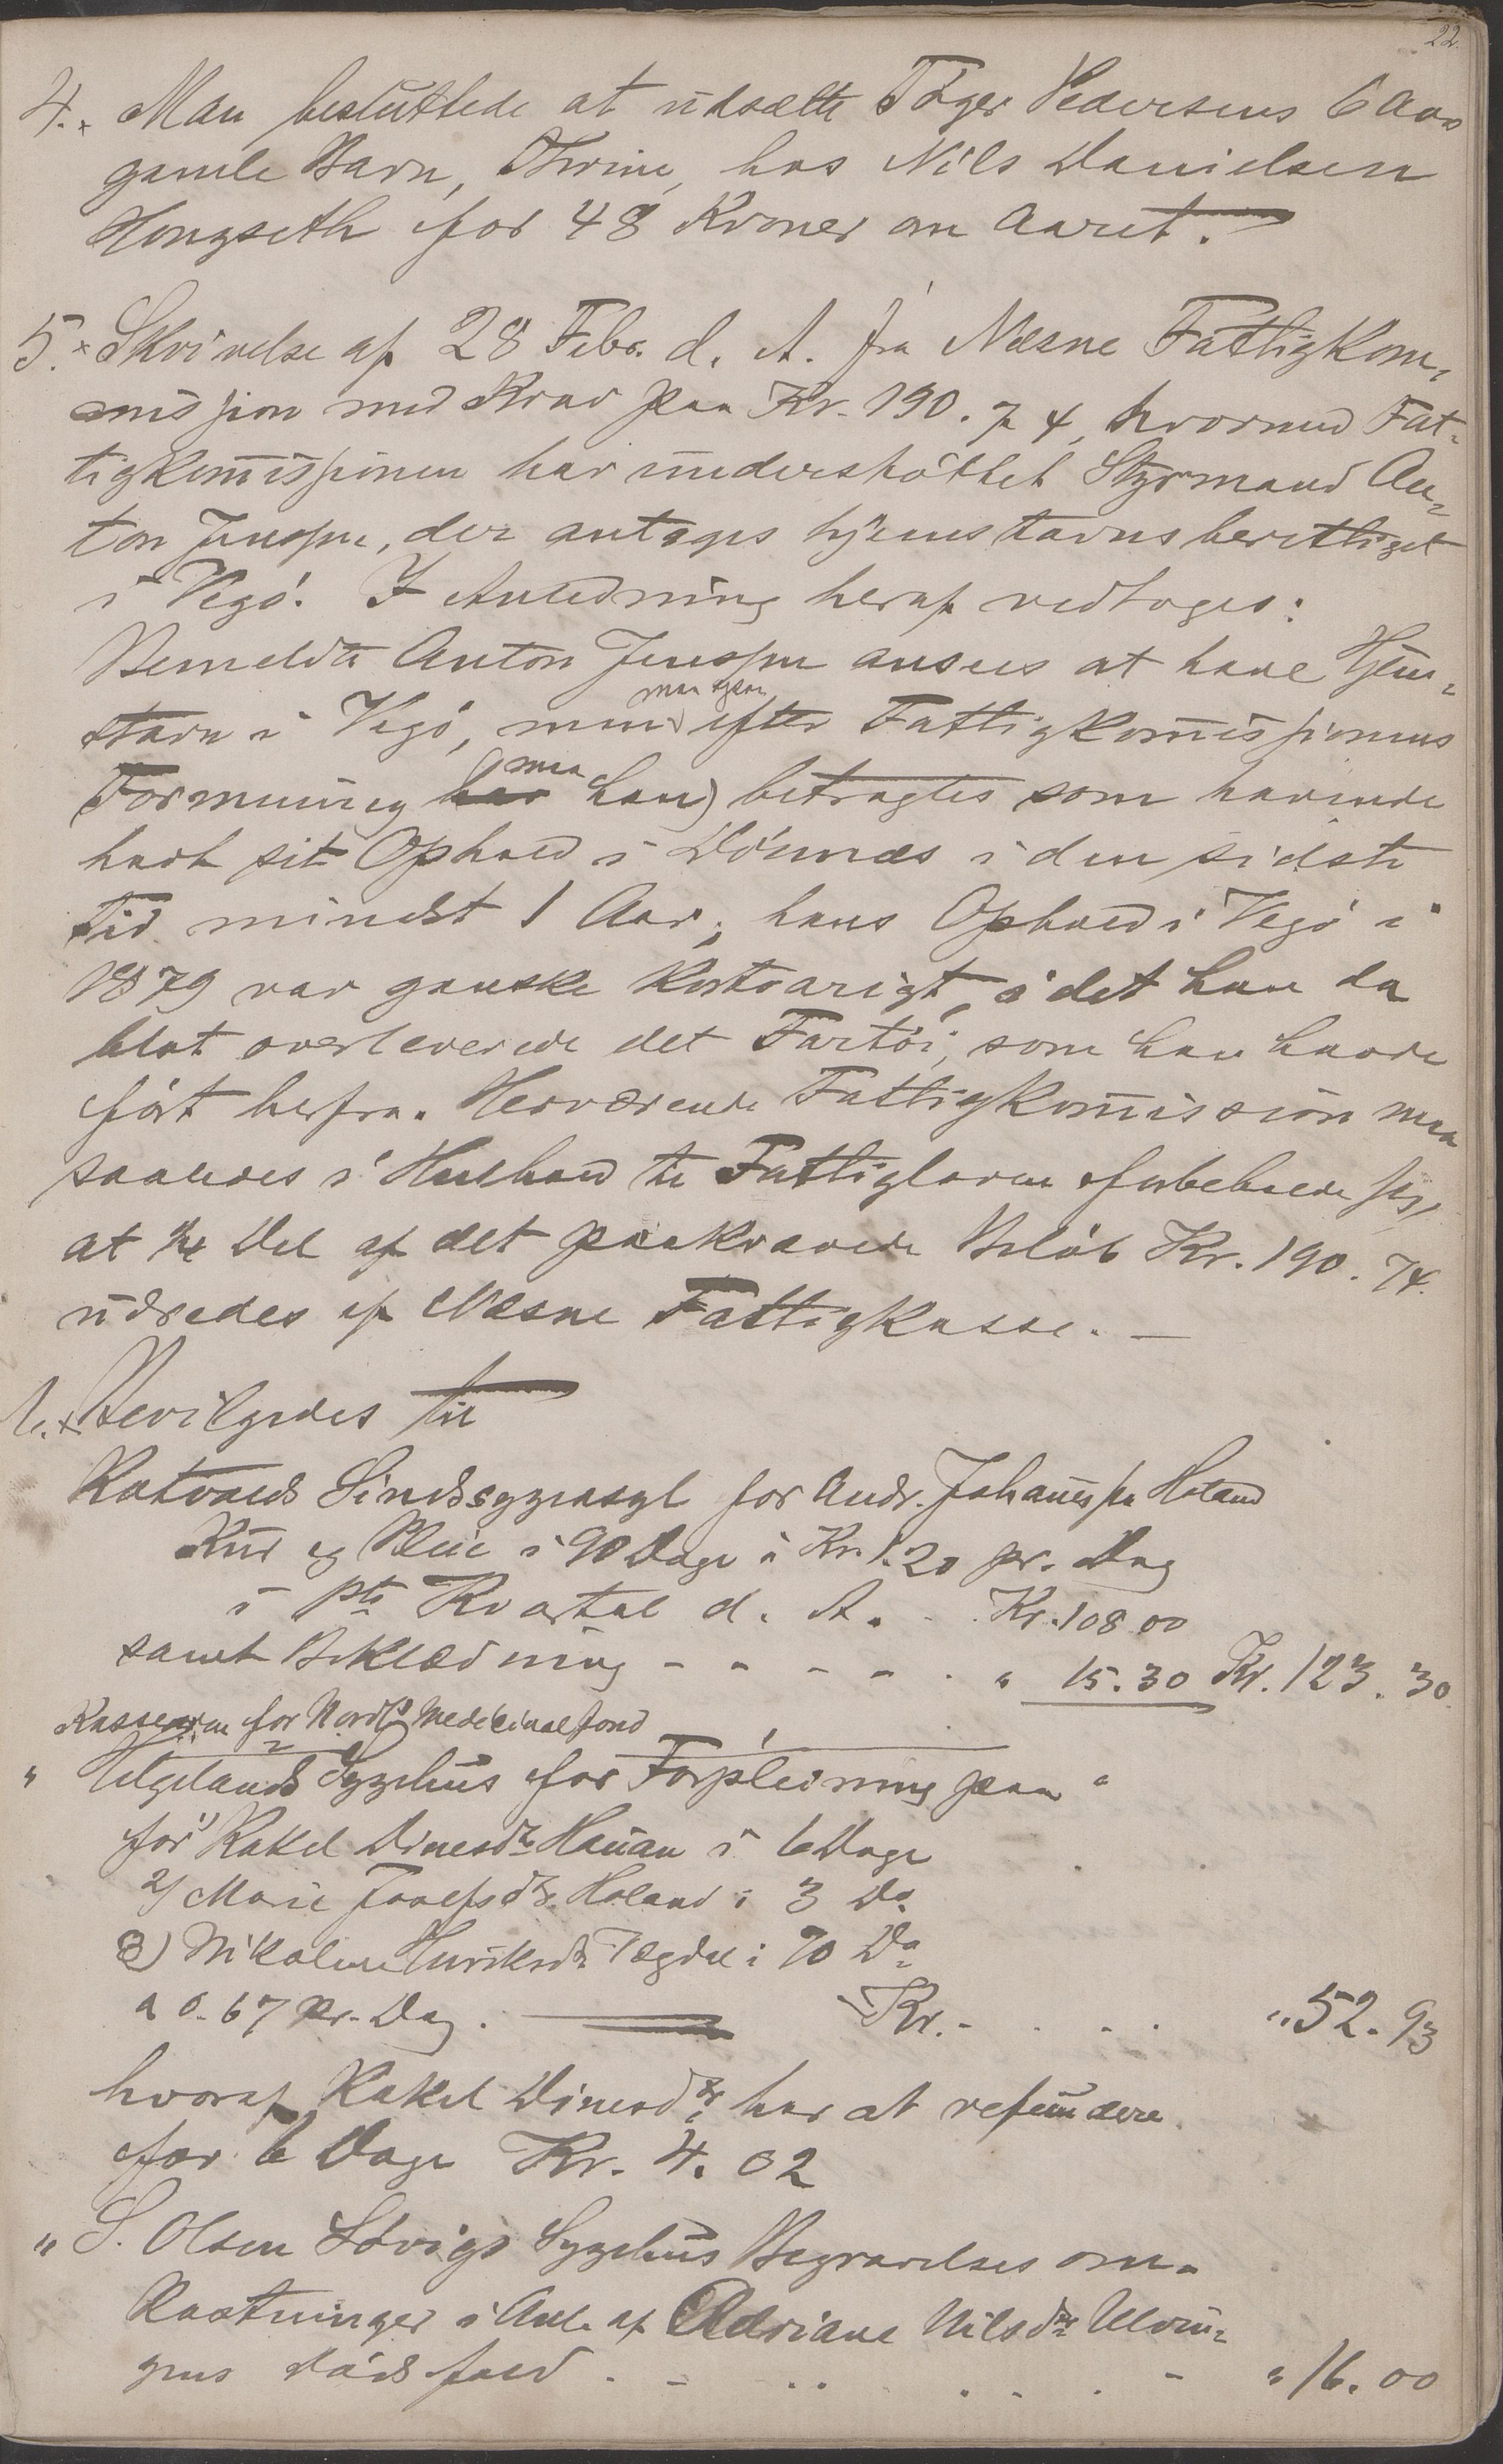 22.
4. Man besluttede at udsætte Tøger Pedersens 6 Aar
gamle Barn, Thrine, hos Nils Danielsen
Hongseth for 48 Kroner om Aaret.
5. Skrivelse af 28 Febr. d. A. fra Næsne Fattigkom-
mission med Krav paa Kr. 190.74, hvormed Fat-
tigkommissionen har understøttet Styrmand An-
ton Jenssen, der antages hjemstavnsberettiget
i Vegø. I Anledning heraf vedtoges:
Bemeldte Anton Jenssen ansees at have Hjem-
stavn i Vegø, men maa efter Fattigkommissionens
Formening har (maa han) betragtes som havende
havt sit Ophold i Dønnæs i den sidste
Tid mindst 1 Aar; hans Ophold i Vegø i
1879 var ganske kortvarigt, idet han da
blot overleverede det Fartøi, som han havde
ført herfra. Herværende Fattigkommission maa
saaledes i Henhold til Fattigloven forbeholde sig,
at 1/4 Del af det paakrævede Beløb Kr. 190.74.
udredes af Næsne Fattigkasse. —
6. Bevilgedes til
Rotvolds Sindssygeasyl for Andr. Johannessen Holand
Kur og Pleie i 90 Dage à Kr. 1.20 pr. Dag
i 1ste Kvartal d. A. - . Kr. 108.00
samt Beklædning - - - - . " 15.30 Kr. 123.30
Kassereren for Nordl. Medicinalfond
" Helgelands Sygehus for Forpleining paa "
for 1) Rakel Dinesdtr Hauan i 6 Dage
2) Marie Josefsdtr. Holand i 3 Do.
3) Nikoline Henriksdtr i 70 Do
a 0.67 pr. Dag. Kr. - . . - . " 52.93
hvoraf Rakel Dinesdtr har at refundere
for 6 Dage Kr. 4.02
" S. Olsen Søvigs Sygehus Begravelses om-
kostninger i Anl. af Adriane Nilsdtr
dødsfald . - . . . - . - " 16.00